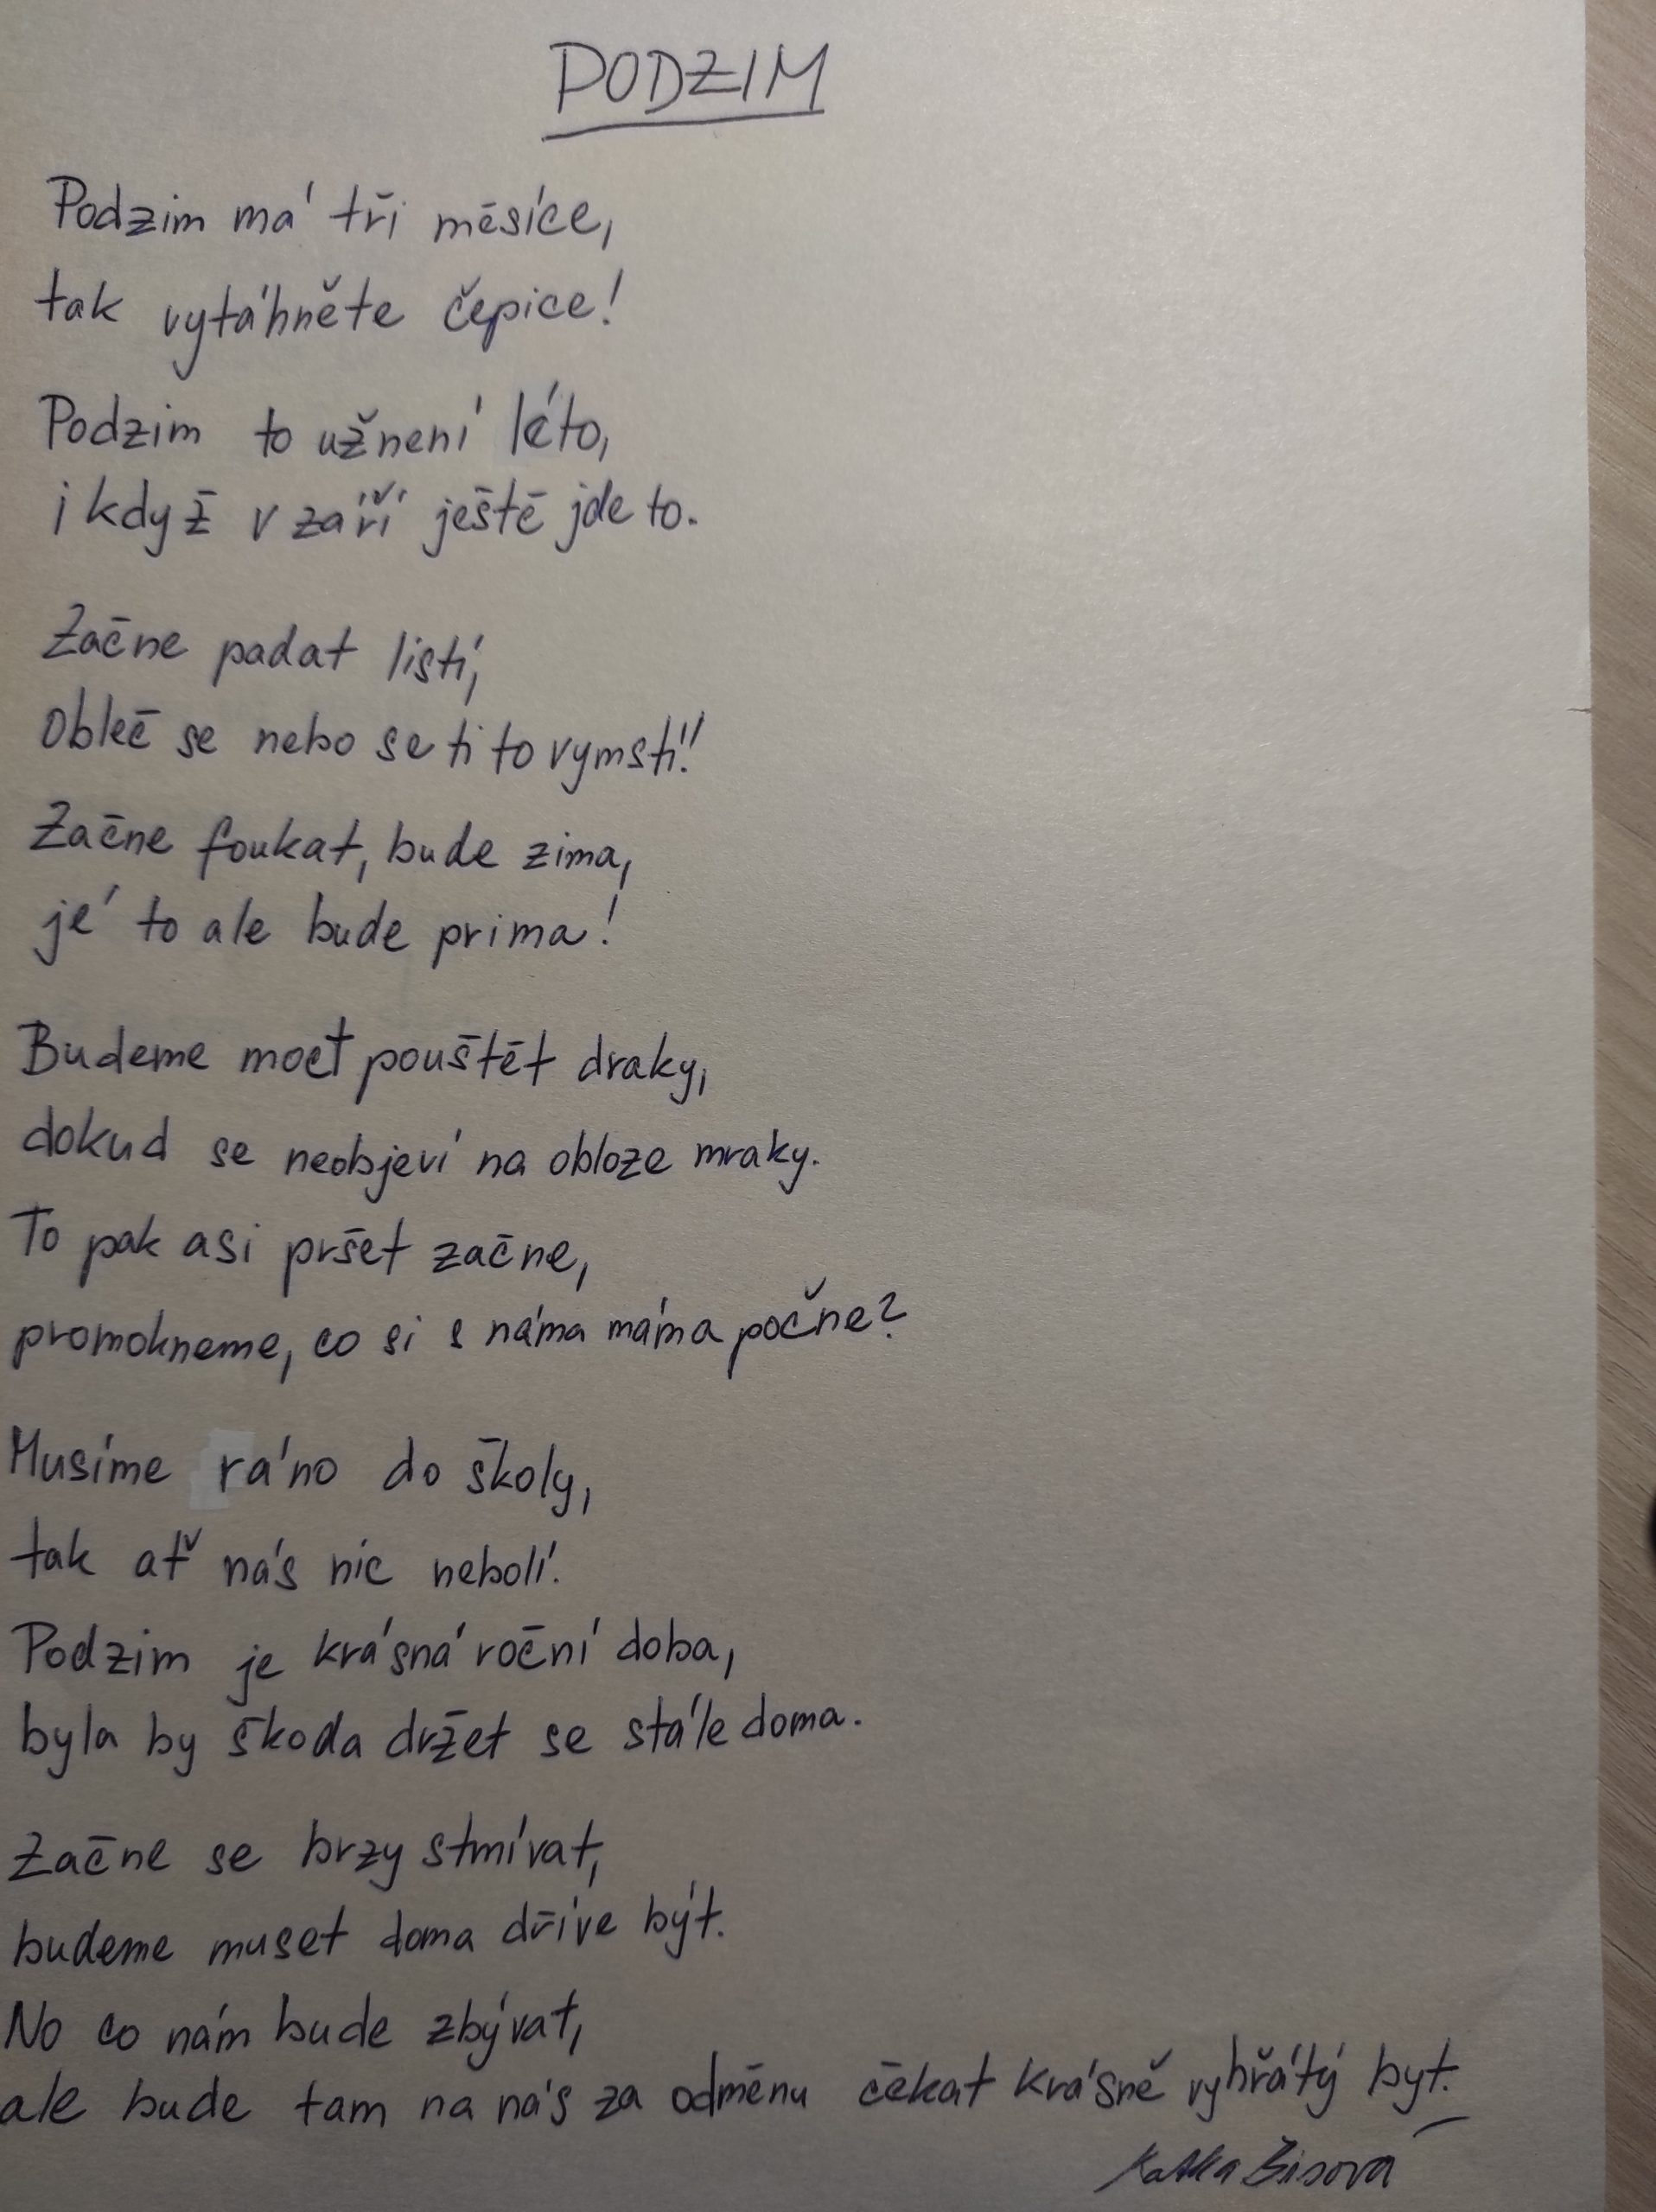 PODZIM
Podzim má tři měsíce,
tak vytáhněte čepice!
Podzim to už není léto,
i když v září ještě jde to.
Začne padat listí,
obleč se nebo se ti to vymstí!
Začne foukat, bude zima,
jé to ale bude prima!
Budeme moct pouštět draky,
dokud se neobjeví na obloze mraky.
To pak asi pršet začne,
promokneme, co si s náma máma počne?
Musíme ráno do školy,
tak ať nás nic nebolí.
Podzim je krásná roční doba,
byla by škoda držet se stále doma.
Začne se brzy stmívat,
budeme muset doma dříve být.
No co nám bude zbývat,
ale bude tam na nás za odměnu čekat krásně vyhřátý byt.
Katka